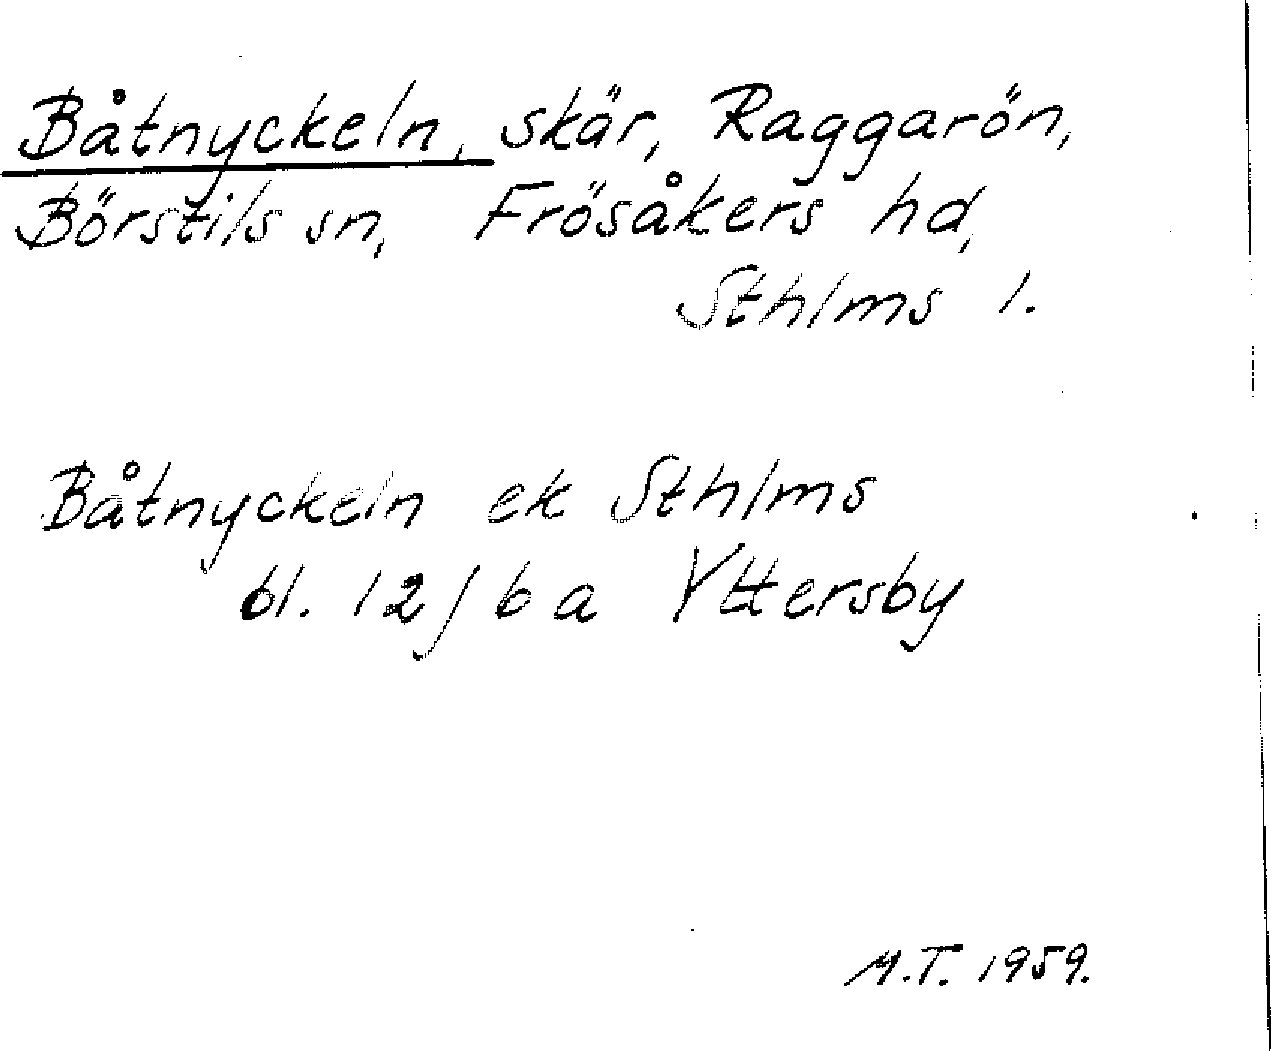 Båtnyckeln, skär, Raggarön,
Börstils sn, Frösåkers hd,
Sthlms l.
Båtnyckeln ek Sthlms
bl. 12/6a Yttersby
M.T. 1959.